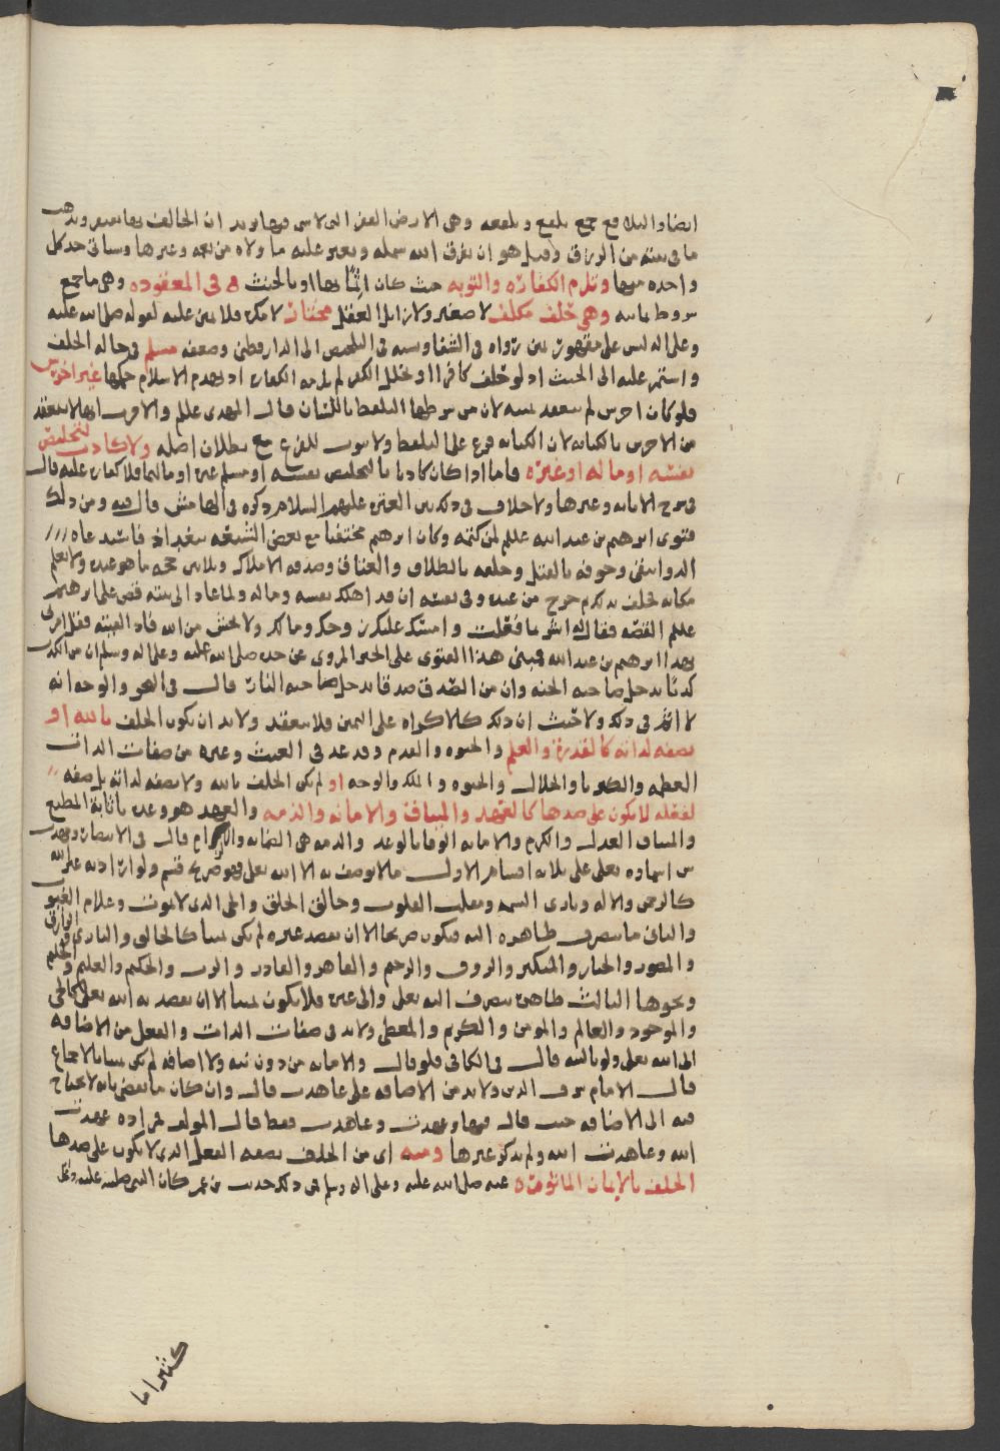 ايضا والبلاقع جمع بلقع وبلقعه وهي الارض القفر التي لا شي فيها يريد ان الحالف بها يفتقر ويذهب
ما في بيته من الرزق وقيل هو ان يفرق الله شمله ويغير عليه ما ولاه من نعمه وغيرها وسياتي حد كل
واحده منها وتلزم الكفاره والتوبه حيث كان اثمًا بها او بالحنث في المعقوده وهي ما جمع
شروطا ثمانيه وهي حَلف مكلف لا صغير ولا زايل العقل مختار لا مكره فلا يمين عليه لقوله صلى الله عليه
وعلى اله ليس على مقهور يمين رواه في الشفا ونسبه في التلخيص الى الدارقطني وضعفه مسلم في حاله الحلف
واستمر عليه الى الحنث اذ لو حلف كافرا او تخلل الكفر لم تلزمه الكفاره اذ يهدم الاسلام حكمها غير اخرس
فلو كان اخرس لم تنعقد يمينه لان من شرطها التلفظ باللسان قال المهدي علىلم والاقرب انها لا تنعقد
من الاخرس بالكتابه لان الكتابه فرع على التلفظ ولا ثبوت للفرع مع بطلان اصله ولا كاذب لتخليص
نفسه او ماله او غيره فاما اذا كان كاذبا بالتخليص نفسه او مسلم غيره او مالهما فلا كفاره عليه قال
في شرح الابانه وغيرها ولا خلاف في ذلك بين العتره عليهم السلام ذكره في الهامش قال فيه ومن ذلك
فتوى ابرهيم بن عبد الله علىلم لمن كتمه وكان ابرهيم مختفيا مع بعض الشيعه ببغداد فاستدعاه
الدوانيقي وخوفه بالقتل وحلفه بالطلاق والعتاق وصدقه الاملاك وثلاثين حجه ما هو عنده ولا يعلم
مكانه فحلف بذلك ثم خرج من عنده وفي نفسه ان قد اهلك نفسه وماله ولما عاد الى بيته قص على ابرهيم
علىلم القصه فقال له ابشر بما فعلت وامسك عليك زوجك ومالك ولا تخش من الله فاد
بهذا ابرهيم بن عبد الله فبنى هذا الفتوى على الخبر المروي عن جده صلى الله عليه وعلى اله وسلم ان من الكذب
كذبًا يدخل صاحبه الجنه وان من الصّدق صدقا يدخل صاحبه النار قال في البحر والوجه انه
لا اثم في ذلك ولا حنث ان ذلك كالاكراه على اليمين فلا ينعقد ولا بد ان يكون الحلف بالله او
بصفه لذاته كالقدرة والعلم والحيوه والقدم وقد عد في الغيث وغيره من صفات الذات
العظمه والكبريا والجلال والحيوه والملك والوجه او لم يكن الحلف بالله ولا بصفه لذاته بل صفه
لفعله لا يكون على ضدها كالعَهد والميثاق والامانه والذمه والعهد هو وعده باثابة المطيع
والميثاق العدل والكرم والامانه الوفا بالوعد والذمه هي الضمانه قال في الانتصار
من اسماوه تعلى على ثلاثه اقسام الاول ما لا يوصف به الا الله تعلى فهو صريح قسم ولو اراد به غير الله
كالرحمن والاله وباري النسمه ومقلب القلوب وخالق الخلق والحي الذي لا يموت وعلام الغيوب
والثاني ما ينصرف ظاهره اليه فيكون صريحا الا ان يقصد غيره لم يكن يمينا كالخالق والباري والرازق
والمصور والجبار والمتكبر والروف والرحيم والقاهر والقادر والرب والحكيم والعليم والحليم
ونحوها الثالث ظاهره ينصرف اليه تعلى والى غيره فلا يكون يمينا الا ان يقصد به الله تعلى كالحي
والموجود والعالم والمومن والكريم والمعطي ولا بد في صفات الذات والفعل من الاضافه
الى الله تعلى ولو بالنيه قال في الكافي فلو قال والامانه من دون نيه ولا اضافه لم يكن يمينا بالاجماع
قال الامام شرف الدين ولا بد من الاضافه على عاهدت قال وان كان ما يقضي بانه لا يحتاج
فيه الى الاضافه حيث قال فيها وعهدت وعاهدت فقط قال المولف مراده عهدت
الله وعاهدت الله ولم يذكر غيرها ومنه اي من الحلف بصفه الفعل الذي لا يكون على ضدها
الحلف بالايمان الماثوره عنه صلى الله عليه وعلى اله وسلم من ذلك حديث بن عمر كان النبي صلى الله عليه
كثيرا ما